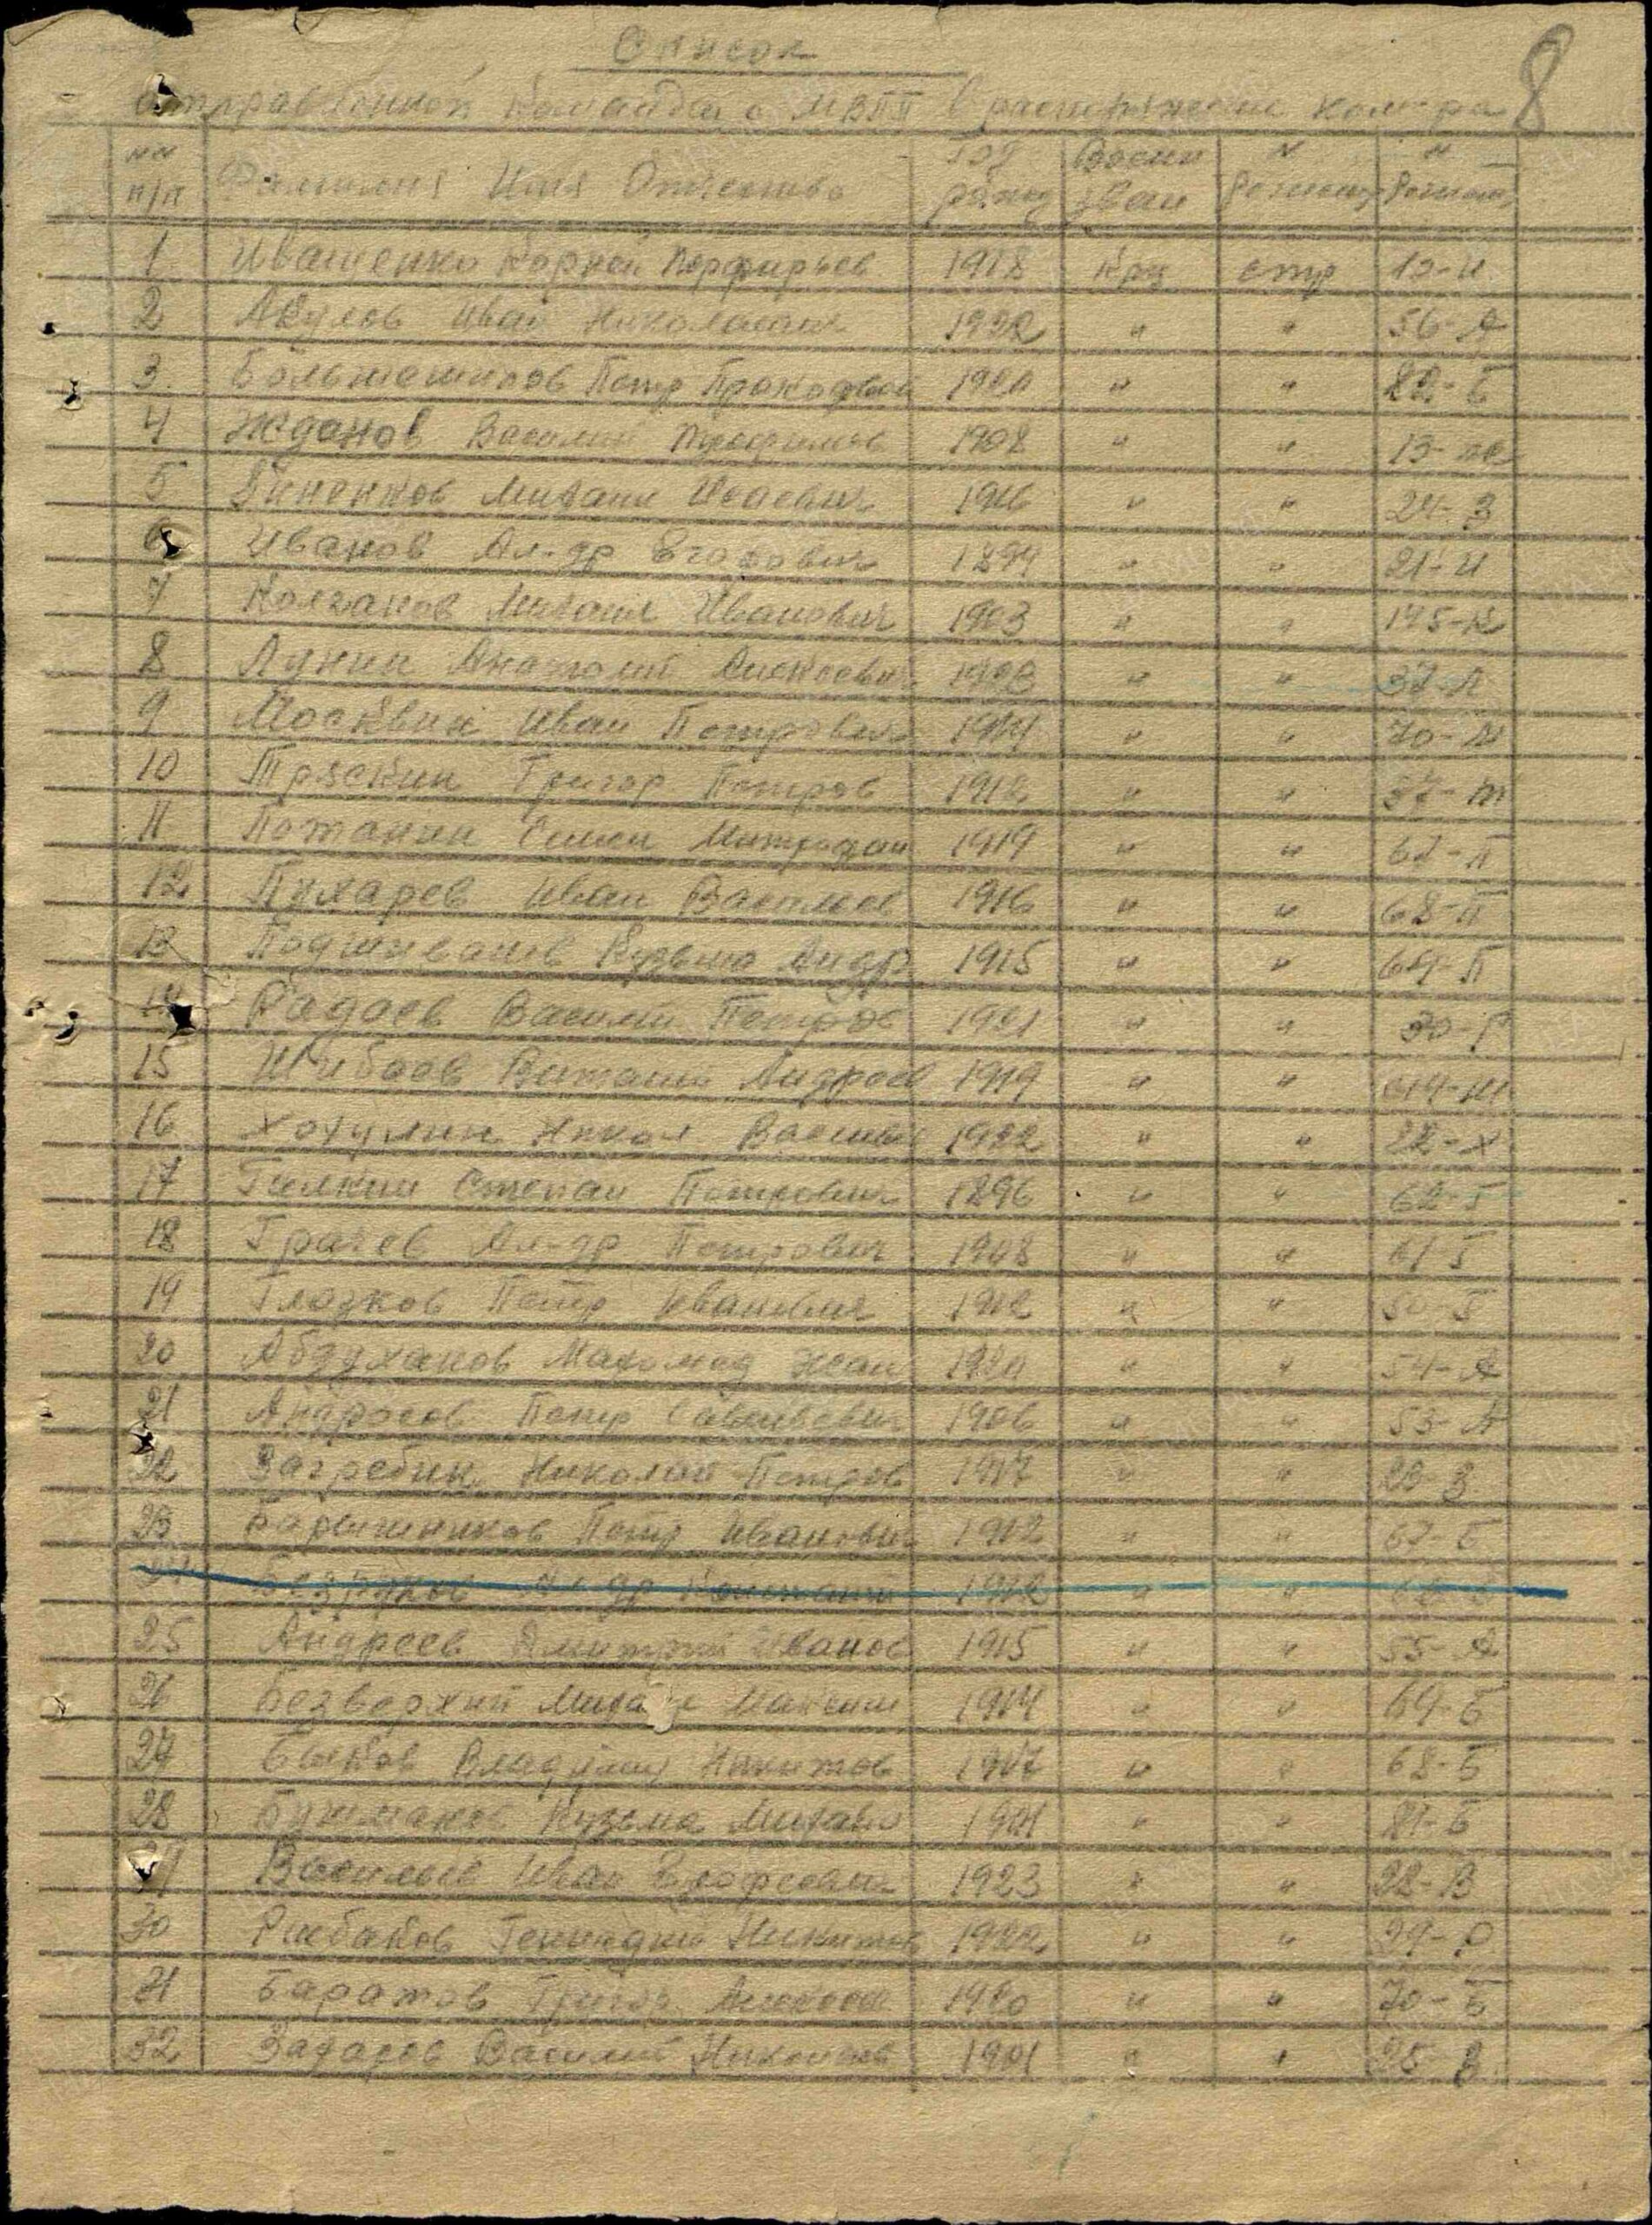 Список
8
отправленной команды с МВПП в распоряжение
№№ п/п Фамилия Имя Отчество Год рожд Воен зван
1 Иващенко Корней Порфирьев 1918 Крц стр 19-И
2 Иван Николаевич 1922 " " 56-А
3 Петр Прокофьев 1920 " " 82-Б
4 Жданов Василий Трофимов 1908 " " 13-ж
5 Зиненков Михаил Исаевич 1916 " " 24-З
6 Иванов Ал-др Егорович 1894 " " 21-И
7 Колганов Михаил Иванович 1903 " " 175-К
8 Лунин Анатолий Алексеевич 1923 " " 37-Л
9 Москвин Иван Петрович 1914 " " 70-М
10 Тряскин Григор Петров 1912 " " 37-т
11 Потанин Семен Митрофан 1919 " " П
12 Пухарев Иван Васильев 1916 " " 68-П
13 Подшивалов Кузьма Андр 1915 " " 64-П
14 Радаев Василий Петров 1921 " " 30-Р
15 Шибаев Виталий Андреев 1919 " "
16 Хохулин Никол Васильев 1922 " " 22-х
17 Гилкин Степан Петрович 1896 " " 62-Г
18 Грачев Ал-др Петрович 1908 " " 61-Г
19 Глазков Петр Иванович 1912 " "
20 Абдуханов Махомед Жан 1920 " " 54-А
21 Андросов Петр Савельевич 1906 " " 53-А
22 Загребин Николай Петров 1917 " " 23-З
23 Барышников Петр Иванович 1912 " " 67-Б
24 Безруков Ал-др Констант 1922 " "
25 Андреев Дмитрий Иванов 1915 " " 55-А
26 Безверхий Михаил Максим 1914 " " 69-Б
27 Быков Владимир Никитов 1917 " " 68-Б
28 Бушманов Кузьма Михайл 1901 " " 81-Б
Васильев Иван Ерофеевич 1923 " " 28-В
30 Рыбаков Геннадий Никитов 1922 " " 29-Р
31 Баратов Григор Алексеев 1920 " " 70-Б
32 Василий Николаев 1901 " " 25-З